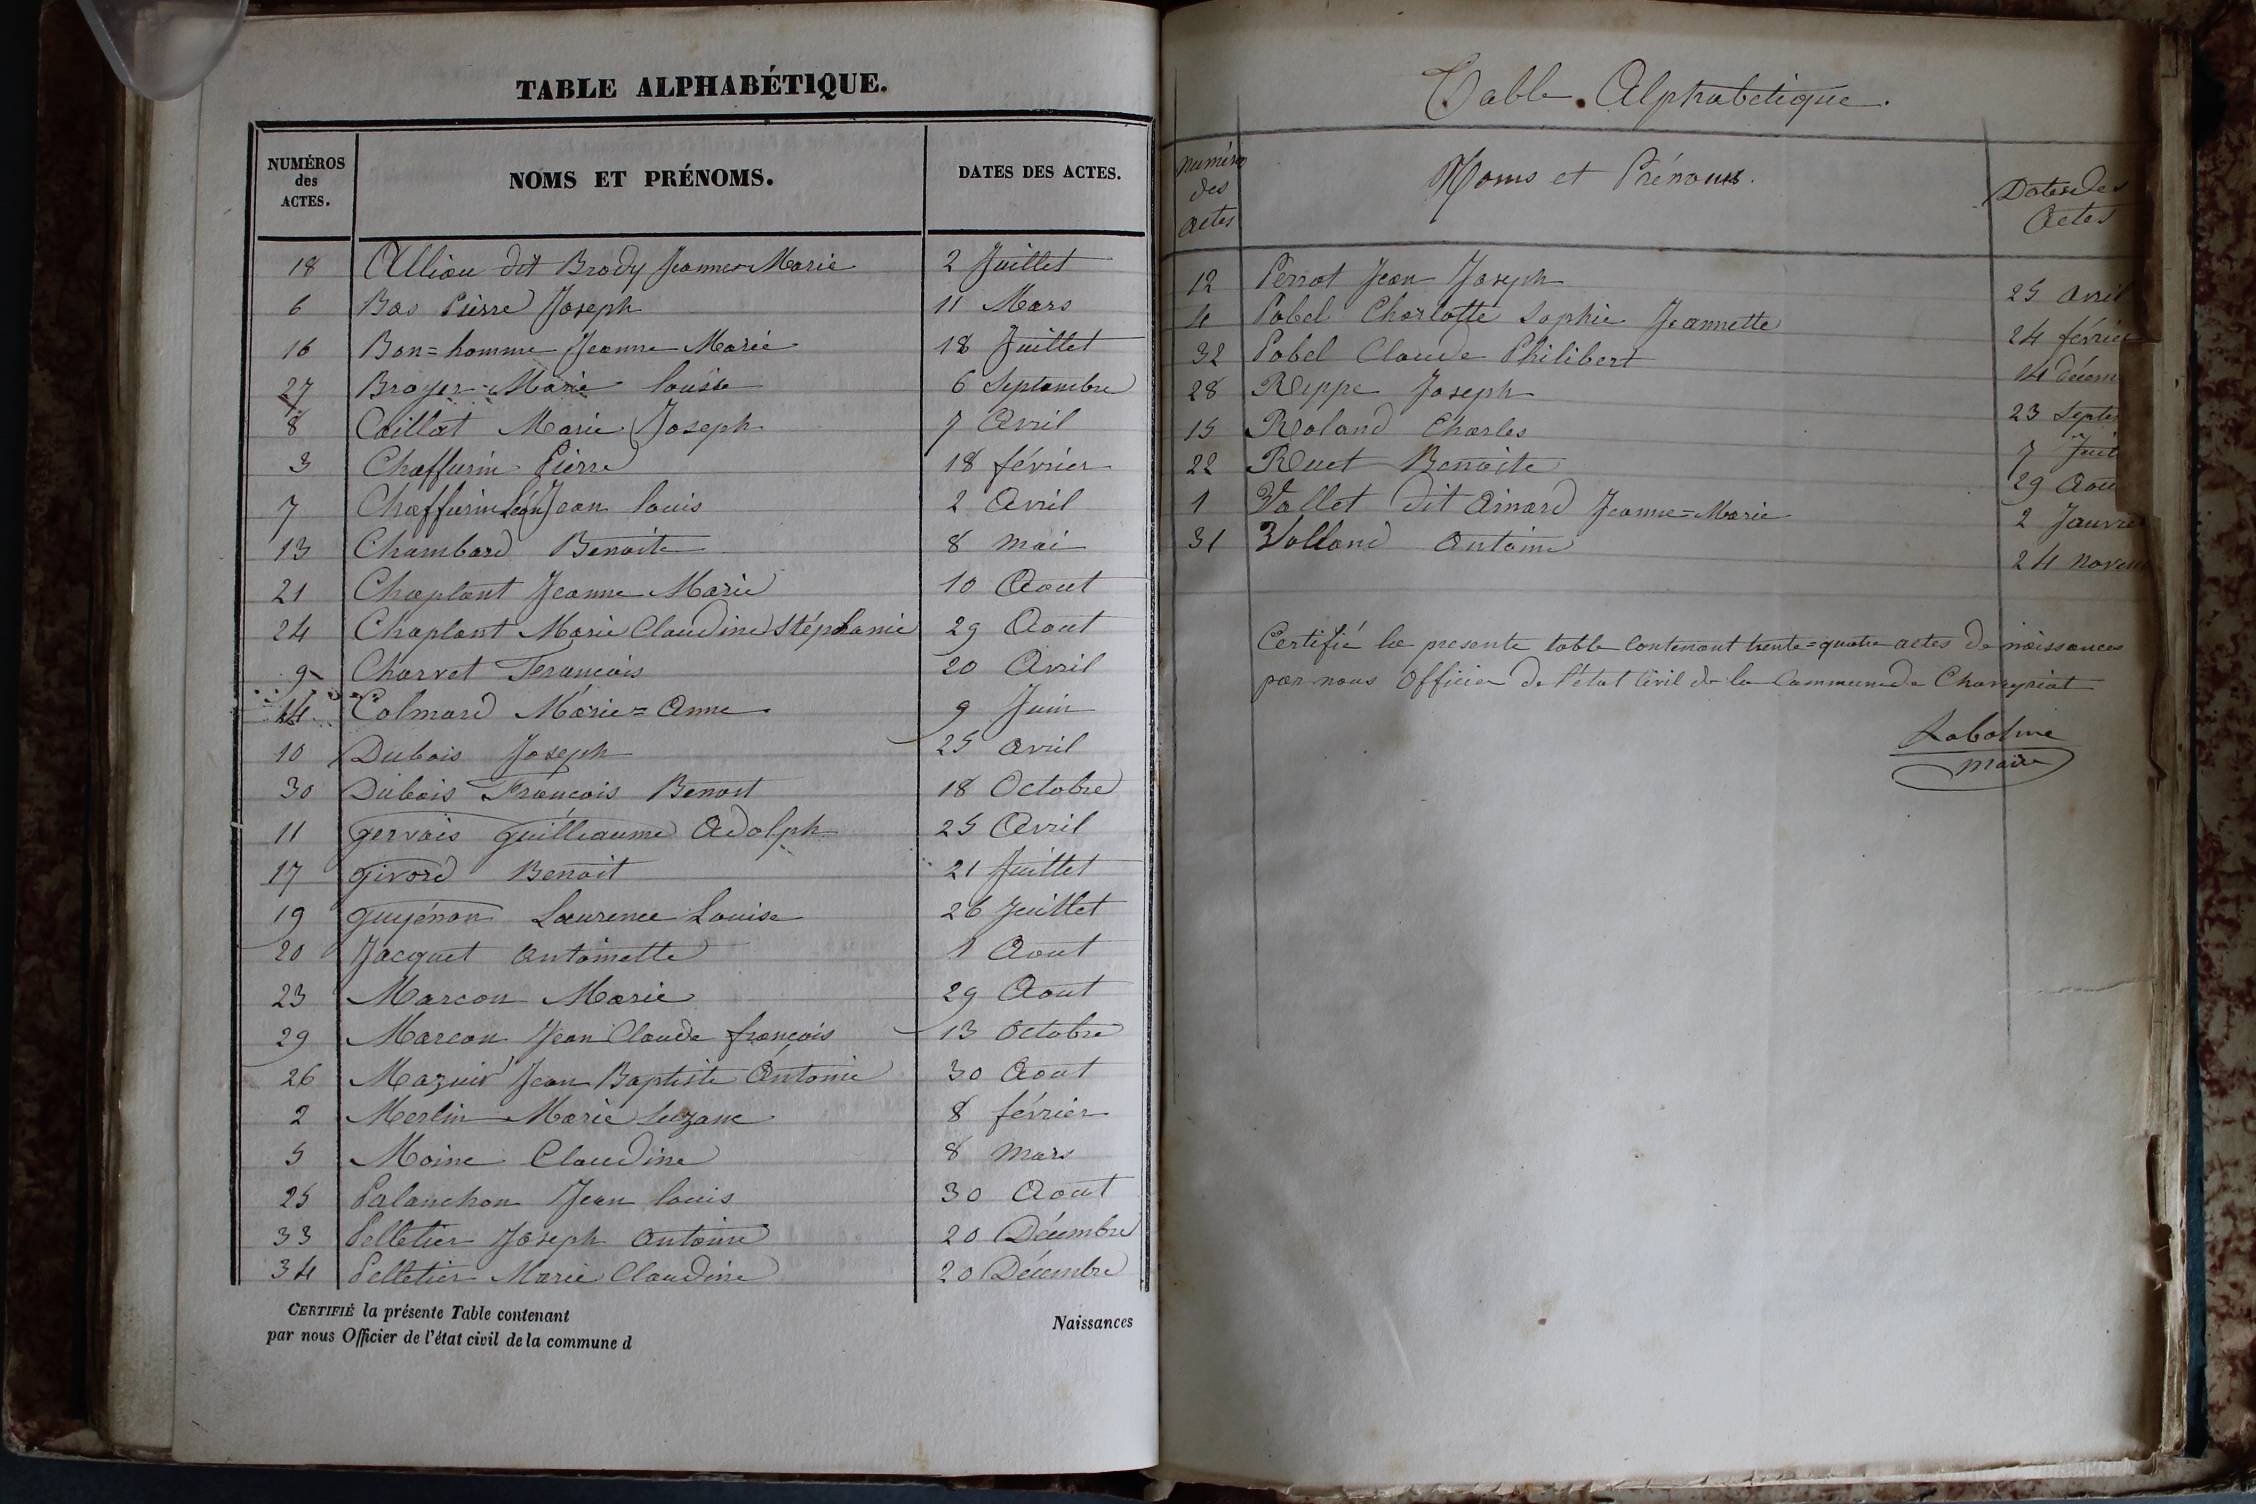 TABLE ALPHABÉTIQUE.
NUMÉROS des ACTES. NOMS ET PRÉNOMS. DATES DES ACTES.
18 Alliou dit Brody Jeanne Marie 2 Juillet
6 Bas Pierre Joseph 11 Mars
16 Bon=homme Jeanne Marie 18 Juillet
27 Broyer Marie Louise 6 Septembre
8 Caillat Marie Joseph 7 Avril
3 Chaffurin Pierre 18 février
7 Chaffurin Léon Jean Louis 2 Avril
13 Chambard Benoite 8 mai
21 Chaplant Jeanne Marie 10 Aout
24 Chaplant Marie Claudine Stéphanie 29 Aout
9 Charvet Francois 20 Avril
14 Colmard Marie=Anne 9 Juin
10 Dubois Joseph 25 avril
30 Dubois Francois Benoit 18 Octobre
11 Gervais Guilliaume Adolph 25 Avril
17 Givord Benoit 21 Juillet
19 Guyénon Laurence Louise 26 Juillet
20 Jacquet Antoinette 1 Aout
23 Marcon Marie 29 Aout
29 Marcon Jean Claude francois 13 Octobre
26 Mazuir Jean Baptiste Antonie 30 Aout
2 Merlin Marie Suzane 8 février
5 Moine Claudine 8 mars
25 Palanchon Jean Louis 30 Aout
33 Pelletier Joseph Antoine 20 Décembre
34 Pelletier Marie Claudine 20 Décembre
CERTIFIÉ la présente Table contenant Naissances
par nous Officier de l'état civil de la commune d
Table Alphabétique.
Numéros des actes Noms et Prénoms. Dates des Actes
12 Perrat Jean Joseph 25 avril
4 Pobel Charlotte Sophie Jeannette 24 février
32 Pobel Claude Philibert 14 décem
28 Rippe Joseph 23 Septe
15 Roland Charles 7 Juil
22 Ruet Benoite 29 Aou
1 Vallet dit Ainard Jeanne=Marie 2 Janvie
31 Volland Antoine 24 novem
Certifié la presente table contenant trente=quatre actes de naissances
par nous Officier de l'état Civil de la Commune de Chaveyriat
Labalme
maire